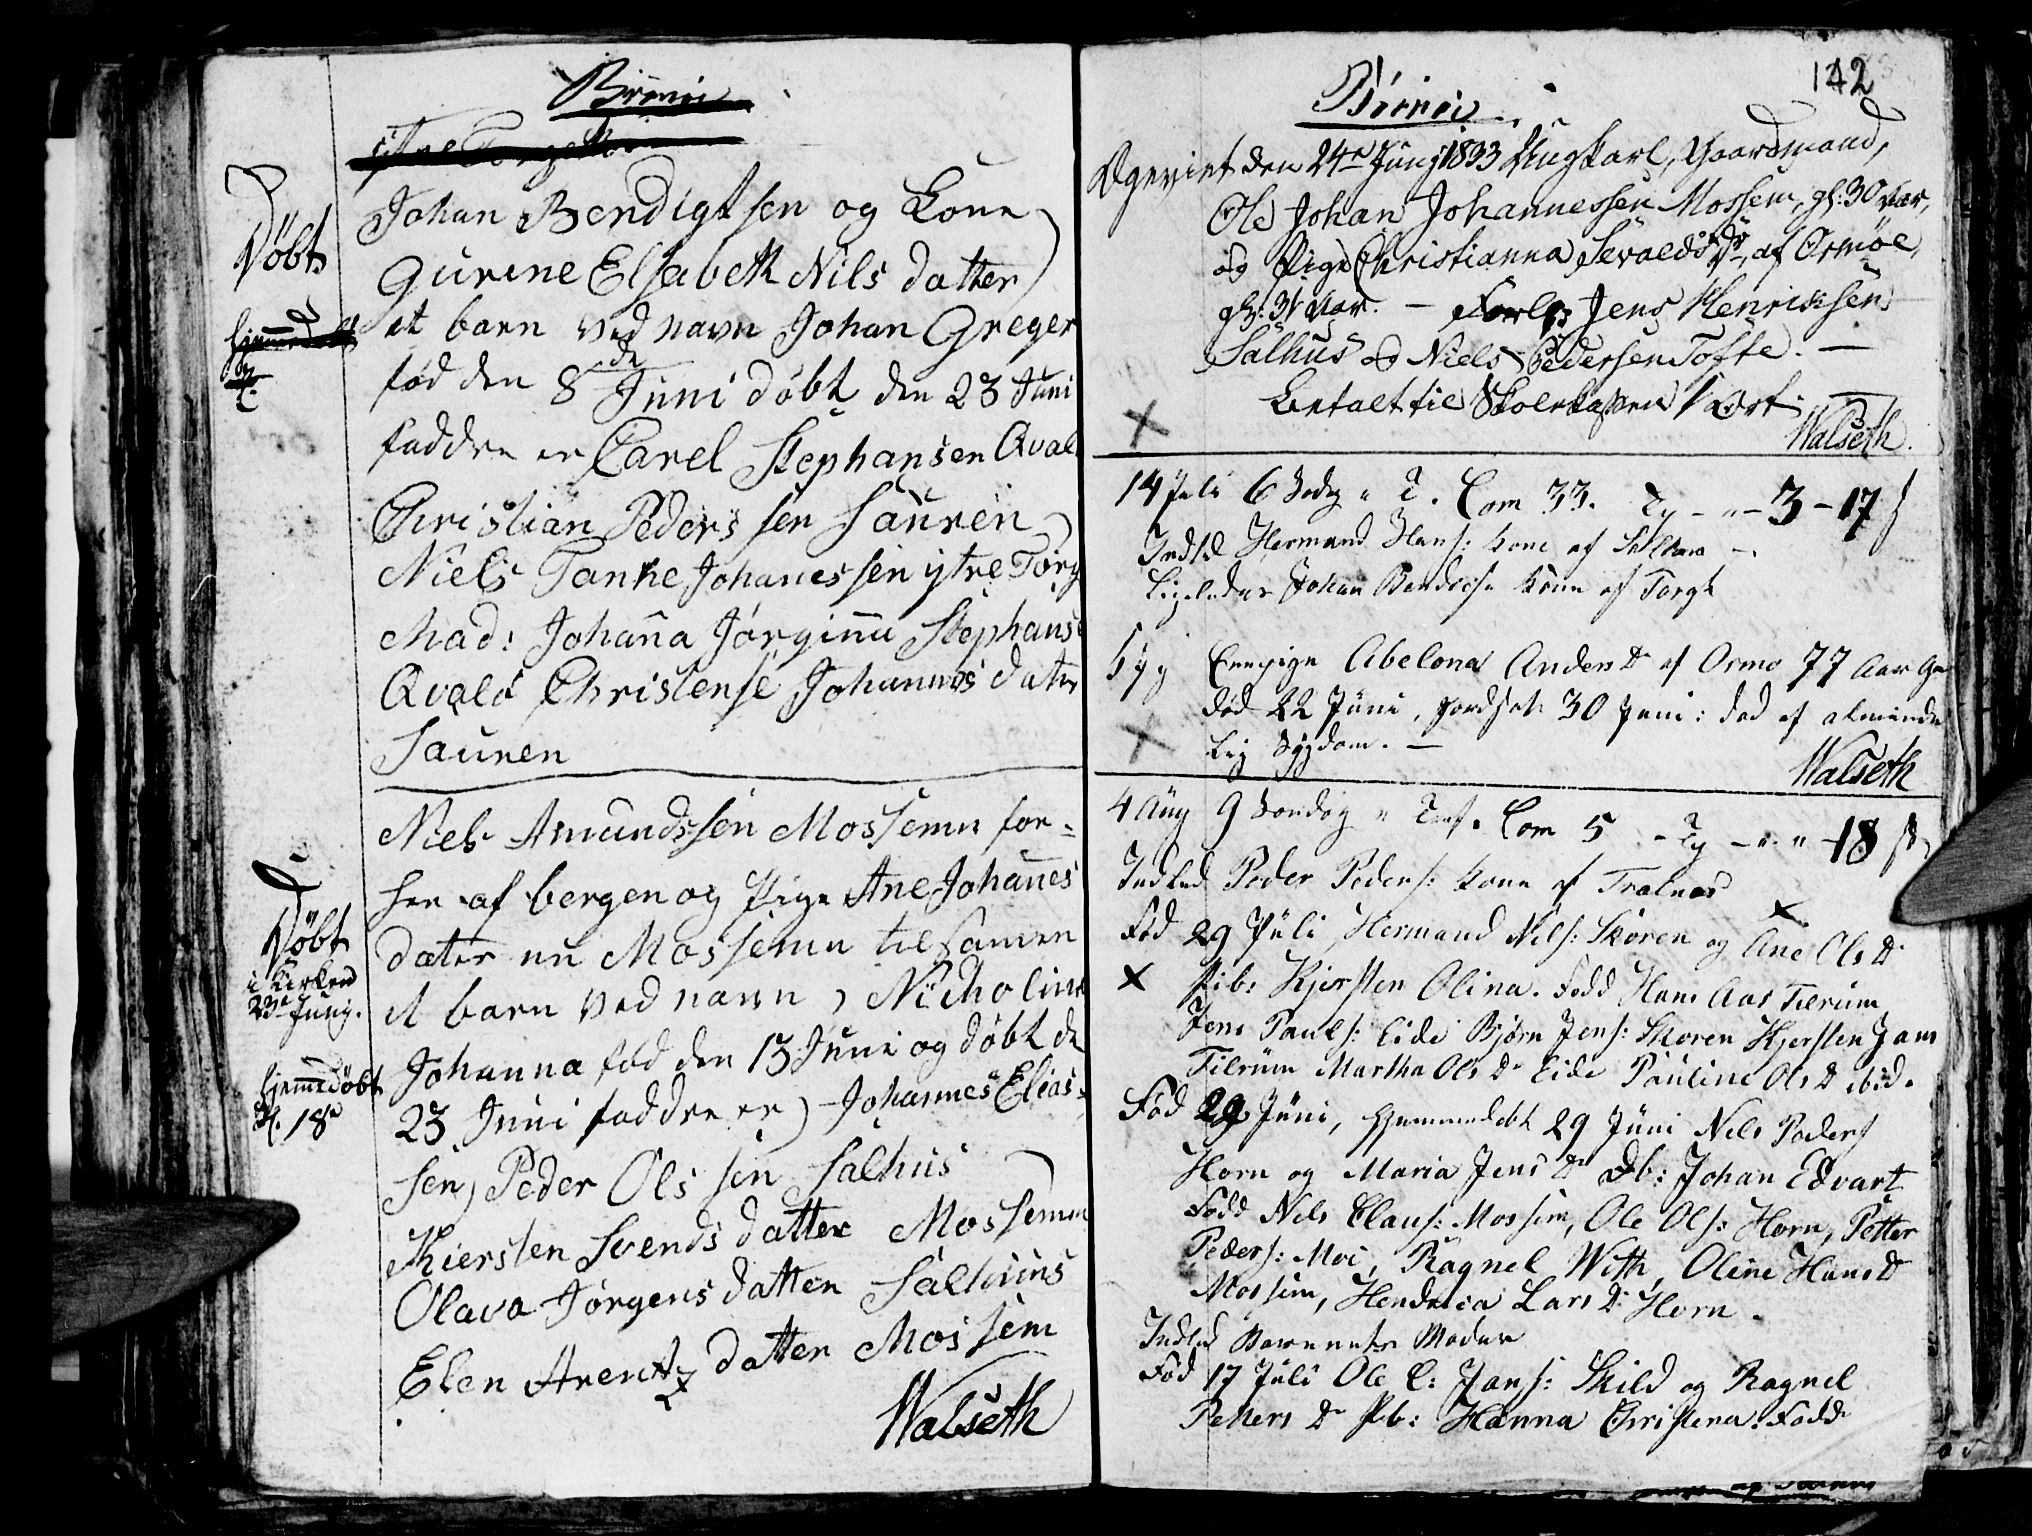 Brönöi
Johan Bendigtsen og kone
Gurine Elsabeth Nils datter
et barn ved navn Johan Greger
fød den 8de Juni döbt den 23 Juni
faddre er Carel Stephansen Qval
Christian Peders sen Sauren
Niels Tanke Johanessen ytre Torg
Mad: Johanna Jörginna Stephans
Qvalö Christense Johannes dater
Sauren
Döbt
hjemmedöbt
Niels Amundssen Mossemn for=
hen af bergen og Pige Ane Johannes
dater nu Mossemn tilsamen
et barn ved navn Nicholine
Johanna fød den 13 Juni og döbt d
23 Juni faddre er Johannes Elias=
sen Peder Ols sen Salhus
Kiersten Svends datter Mossemn
Olava Jörgens datter Salhuus
Elen Arentz datter Mossem
Walseth
Döbt
i Kirken
23de Junij.
hjemmedöbt
d. 18de
142
Brönöi
Ægeviet den 24de Junj 1833 Ungkarl, Gaardmand,
Ole Johan Johannessen Mossem, gl: 30 Aar,
og Pige Christianna Sevaldsdr, af Ormöe,
gl: 31 Aar. — Forl: Jens Henriksen
Salhus og Niels Pedersen Tofte. —
Betalt til Skolekassen 1 Ort. —
Walseth.
14 Juli 6 Sndg " T. Com 33. Ty - " - 3 - 17 s
Indled Hermand Hans: kone af
Ligeledes Johan Bendics: kone af Torgt
Pige Abelona Anders Dr af Ormo 77 Aar Ga
död 22 Juni, jordsat 30 Juni: död af alminde
lig Sygdom. —
Walseth
4 Aug 9 Sondag " Com 5 - Ty - " - " - 18 s
Indled Peder Peders: kone af Tralnæs
Fød 29 Juli Hermand Nils: Skoren og Ane Ols Dr
Pib: Kjersten Olina. Fadd Hans Aas Tilrum
Jens Pauls: Eide Bjørn Jens: Skoren Kjersten Jans
Tilrum Martha Ols Dr Eide Pauline Ols Dr ibid.
Fød 29 Juni, hjemmedöbt 29 Juni Nils Peders
Horn og Maria Jens Dr Db: Johan Edvart
Fadd Nils Claus: Mossem, Ole Ols: Horn, Petter
Peders: Moi, Ragnel With, Oline Hans Dr
Mossem, Hendrica Lars Dr Horn.
Indled Barnets Moder
Fød 17 Juli Ole C: Jans: Skild og Ragnel
Petters Dr Pb: Hanna Christena. Fadd: